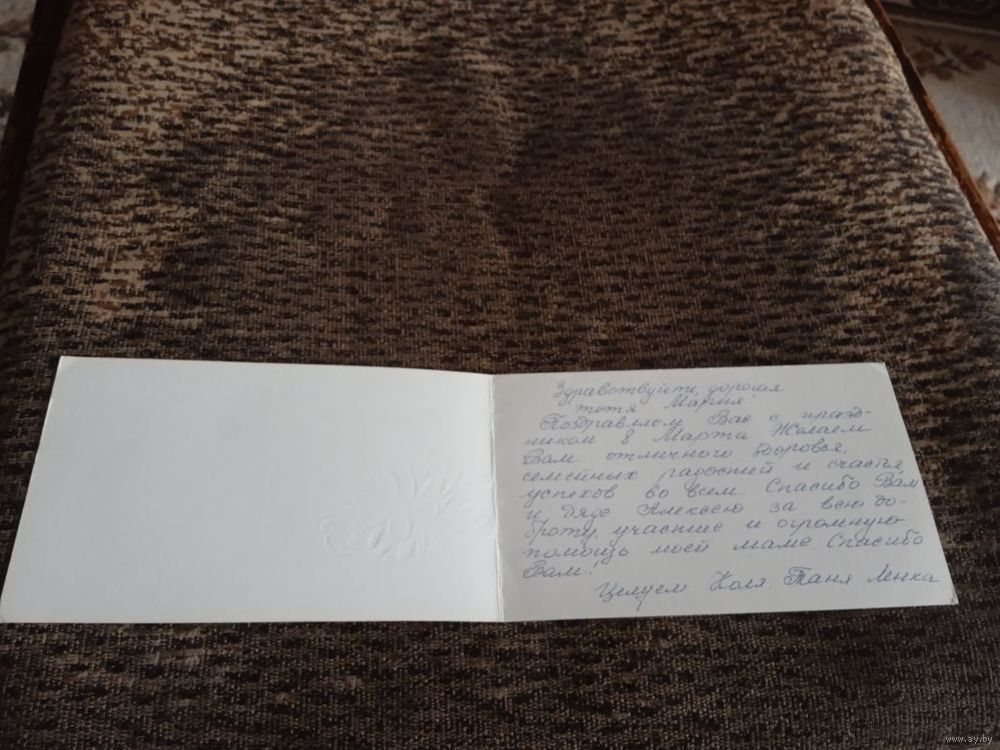 Здравствуйте, дорогая
тётя Мария!
Поздравляем Вас с празд-
ником 8 Марта Желаем
Вам отличного здоровья,
семейных радостей и счастья,
успехов во всем Спасибо Вам
и дяде Алексею за всю до-
броту, участие и огромную
помощь моей маме Спасибо
Вам!
Целуем Коля. Таня Ленка
www.ay.by